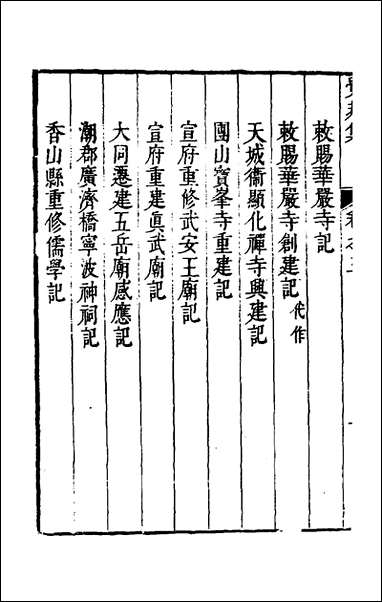 敕賜華嚴寺記
敕賜華嚴寺創建記代作
天城衞顯化禪寺興建記
團山寶峯寺重建記
宣府重修武安王廟記
宣府重建眞武廟記
大同遷建五岳廟感應記
潮郡廣濟橋寧波神祠記
香山縣重修儒學記